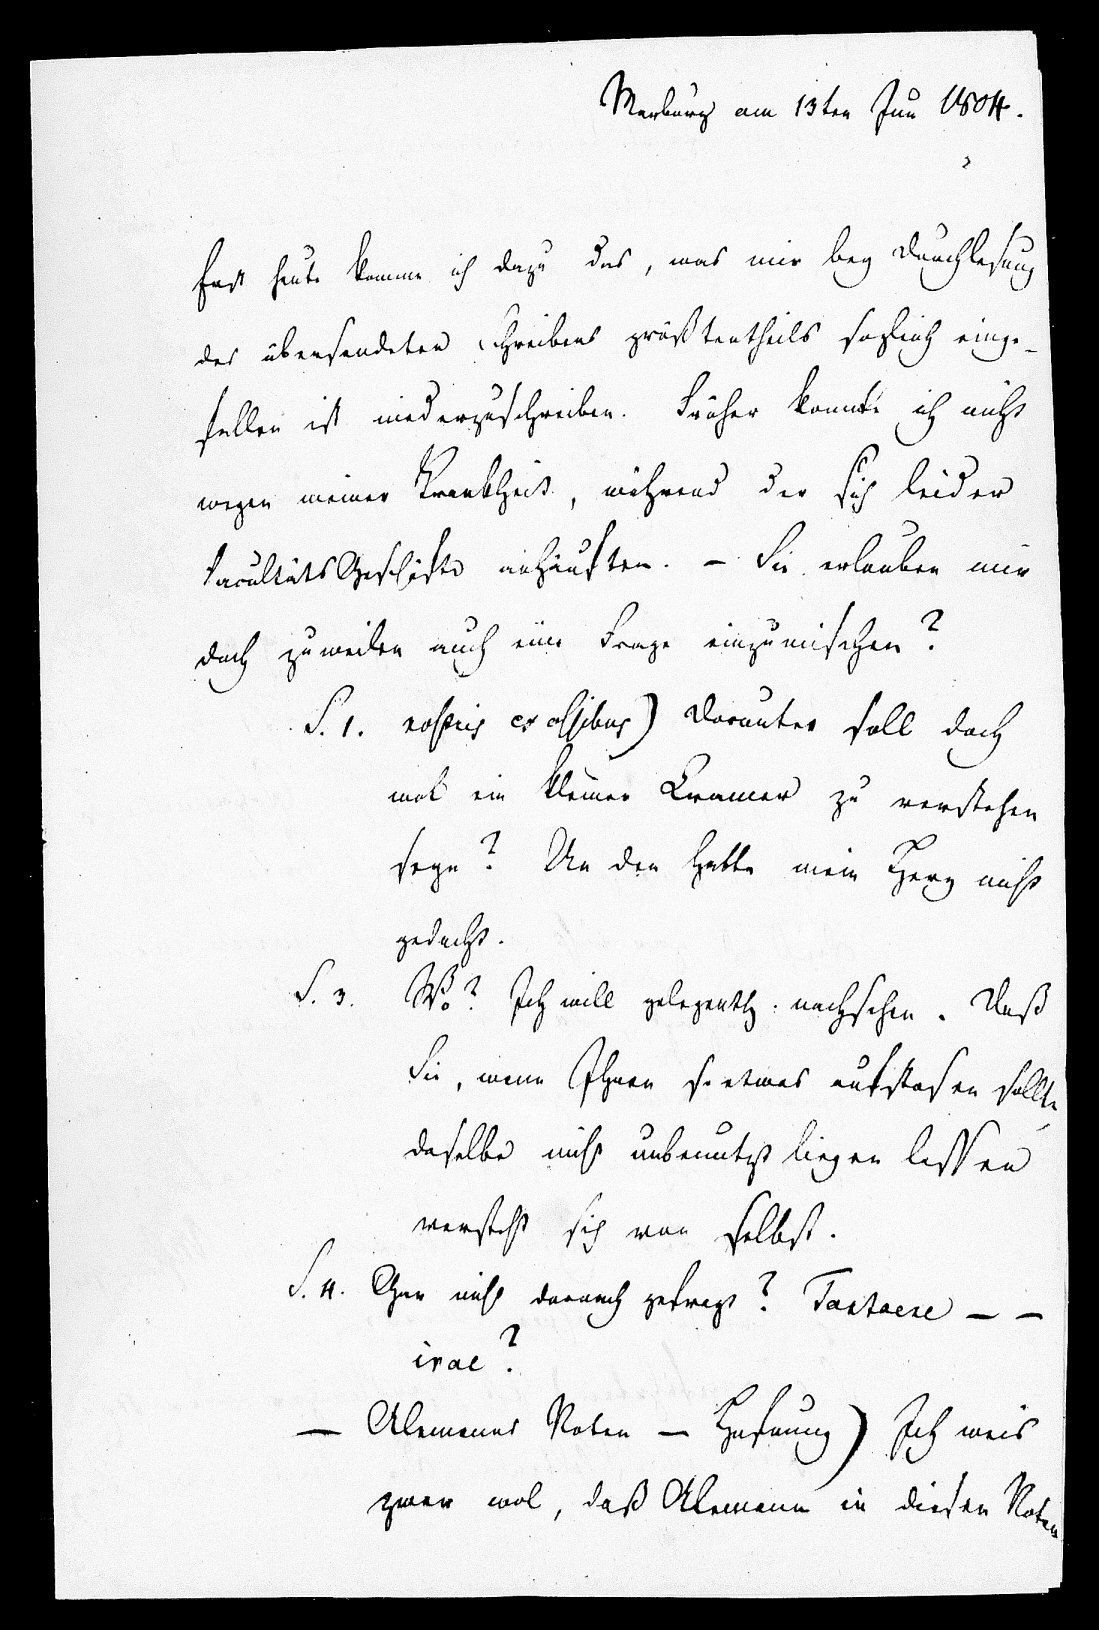 Marburg am 13ten Jun 1804.
Erst heute komme ich dazu das, was mir bey Durchlesung
des übersendeten Schreibens größtentheils sogleich einge-
fallen ist niederzuschreiben. Früher konnte ich nicht
wegen meiner Krankheit, während der sich leider
FacultätsGeschäfte anhäuften. – Sie erlauben mir
doch zuweilen auch eine Frage einzumischen?
S. 1. nostris ex ossibus) Darunter soll doch
wol ein kleiner Cramer zu verstehen
seyn? An den hatte mein Herz nicht
gedacht.
S. 3. Wo? Ich will gelegentl. nachsehen. Daß
Sie, wenn Ihnen so etwas aufstosen sollte
daselbe nicht unbenutzt liegen lassen
versteht sich von selbst.
S. 4. Gar nicht darnach gefragt? Tantaene – –
irae?
— Alemanns Noten – Hofnung) Ich weis
zwar wol, daß Alemann in diesen Noten